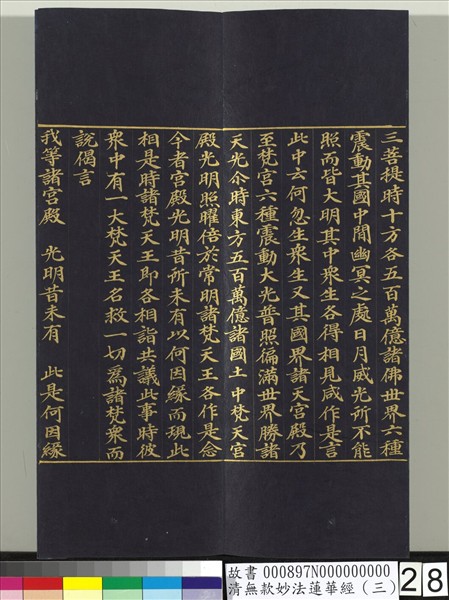 三菩提時十方各五百萬億諸佛世界六種
震動其國中間幽冥之處日月威光所不能
照而皆大明其中眾生各得相見咸作是言
此中云何忽生眾生又其國界諸天宮殿乃
至梵宮六種震動大光普照徧滿世界勝諸
天光尒時東方五百萬億諸國土中梵天宮
殿光明照曜倍於常明諸梵天王各作是念
今者宮殿光明昔所未有以何因緣而現此
相是時諸梵天王即各相詣共議此事時彼
眾中有一大梵天王名救一切為諸梵眾而
說偈言
我等諸宮殿 光明昔未有 此是何因緣
故書 000897N000000000
清無款妙法蓮華經(三)
28